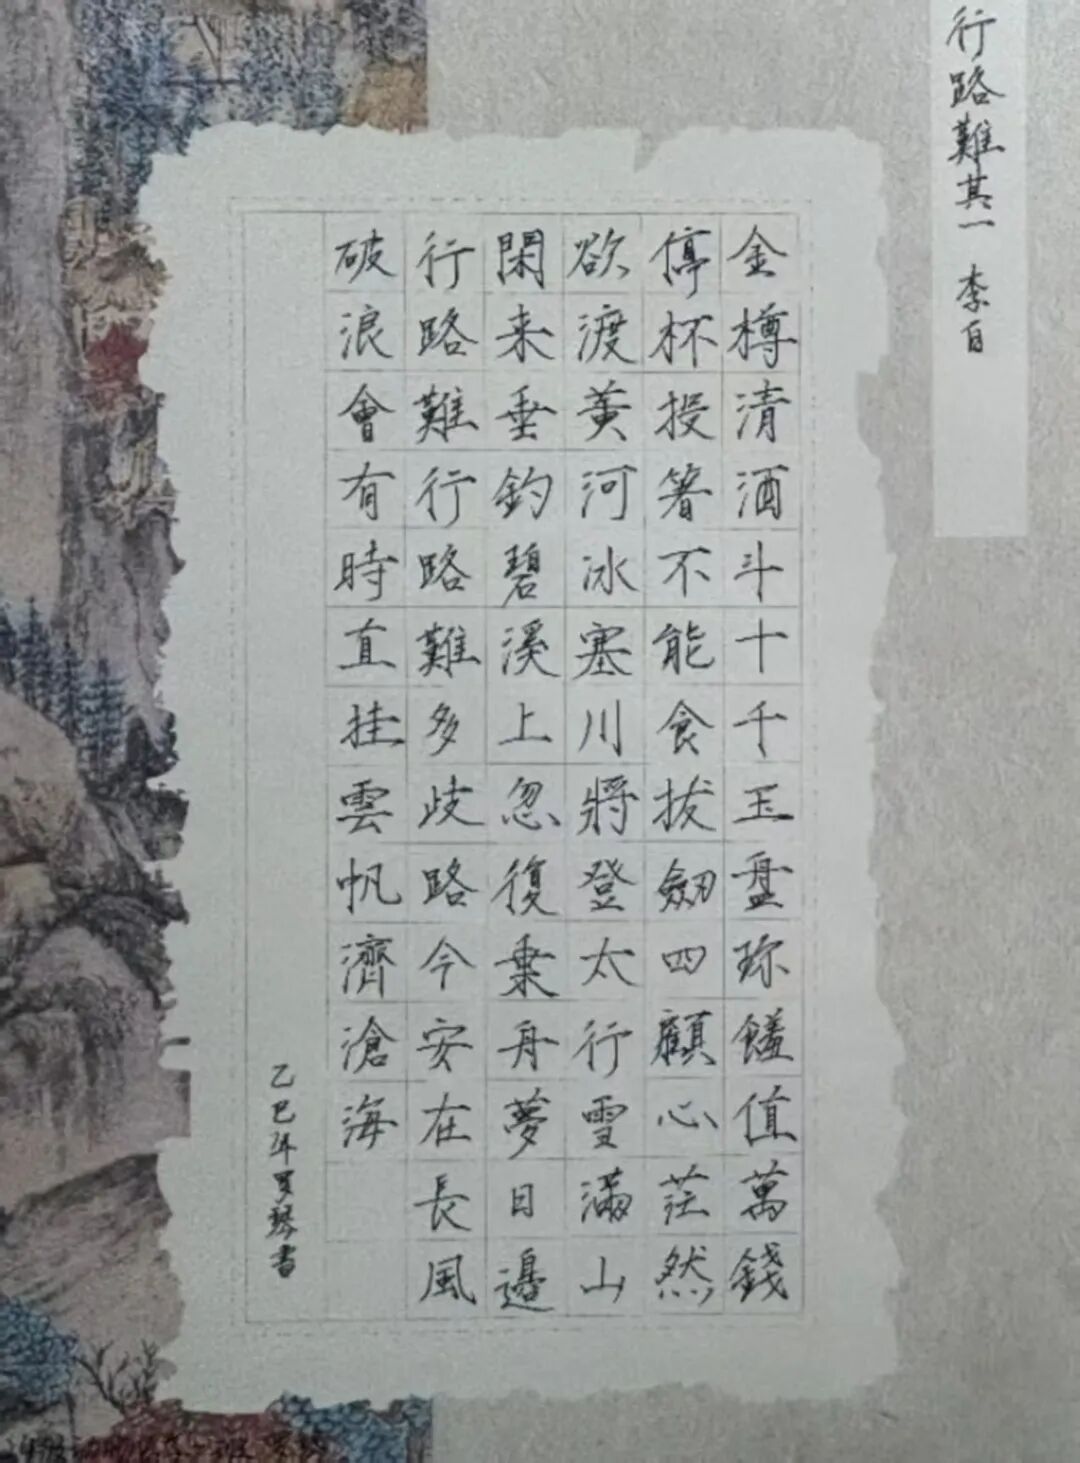 行路難其一 李白
金樽清酒斗十千玉盤珎饈值萬錢
停杯投箸不能食拔劒四顧心茫然
欲渡黃河冰塞川將登太行雪滿山
閑来垂釣碧溪上忽復乗舟夢日邊
行路難行路難多歧路今安在長風
破浪會有時直挂雲帆濟滄海
乙巳年 琴書